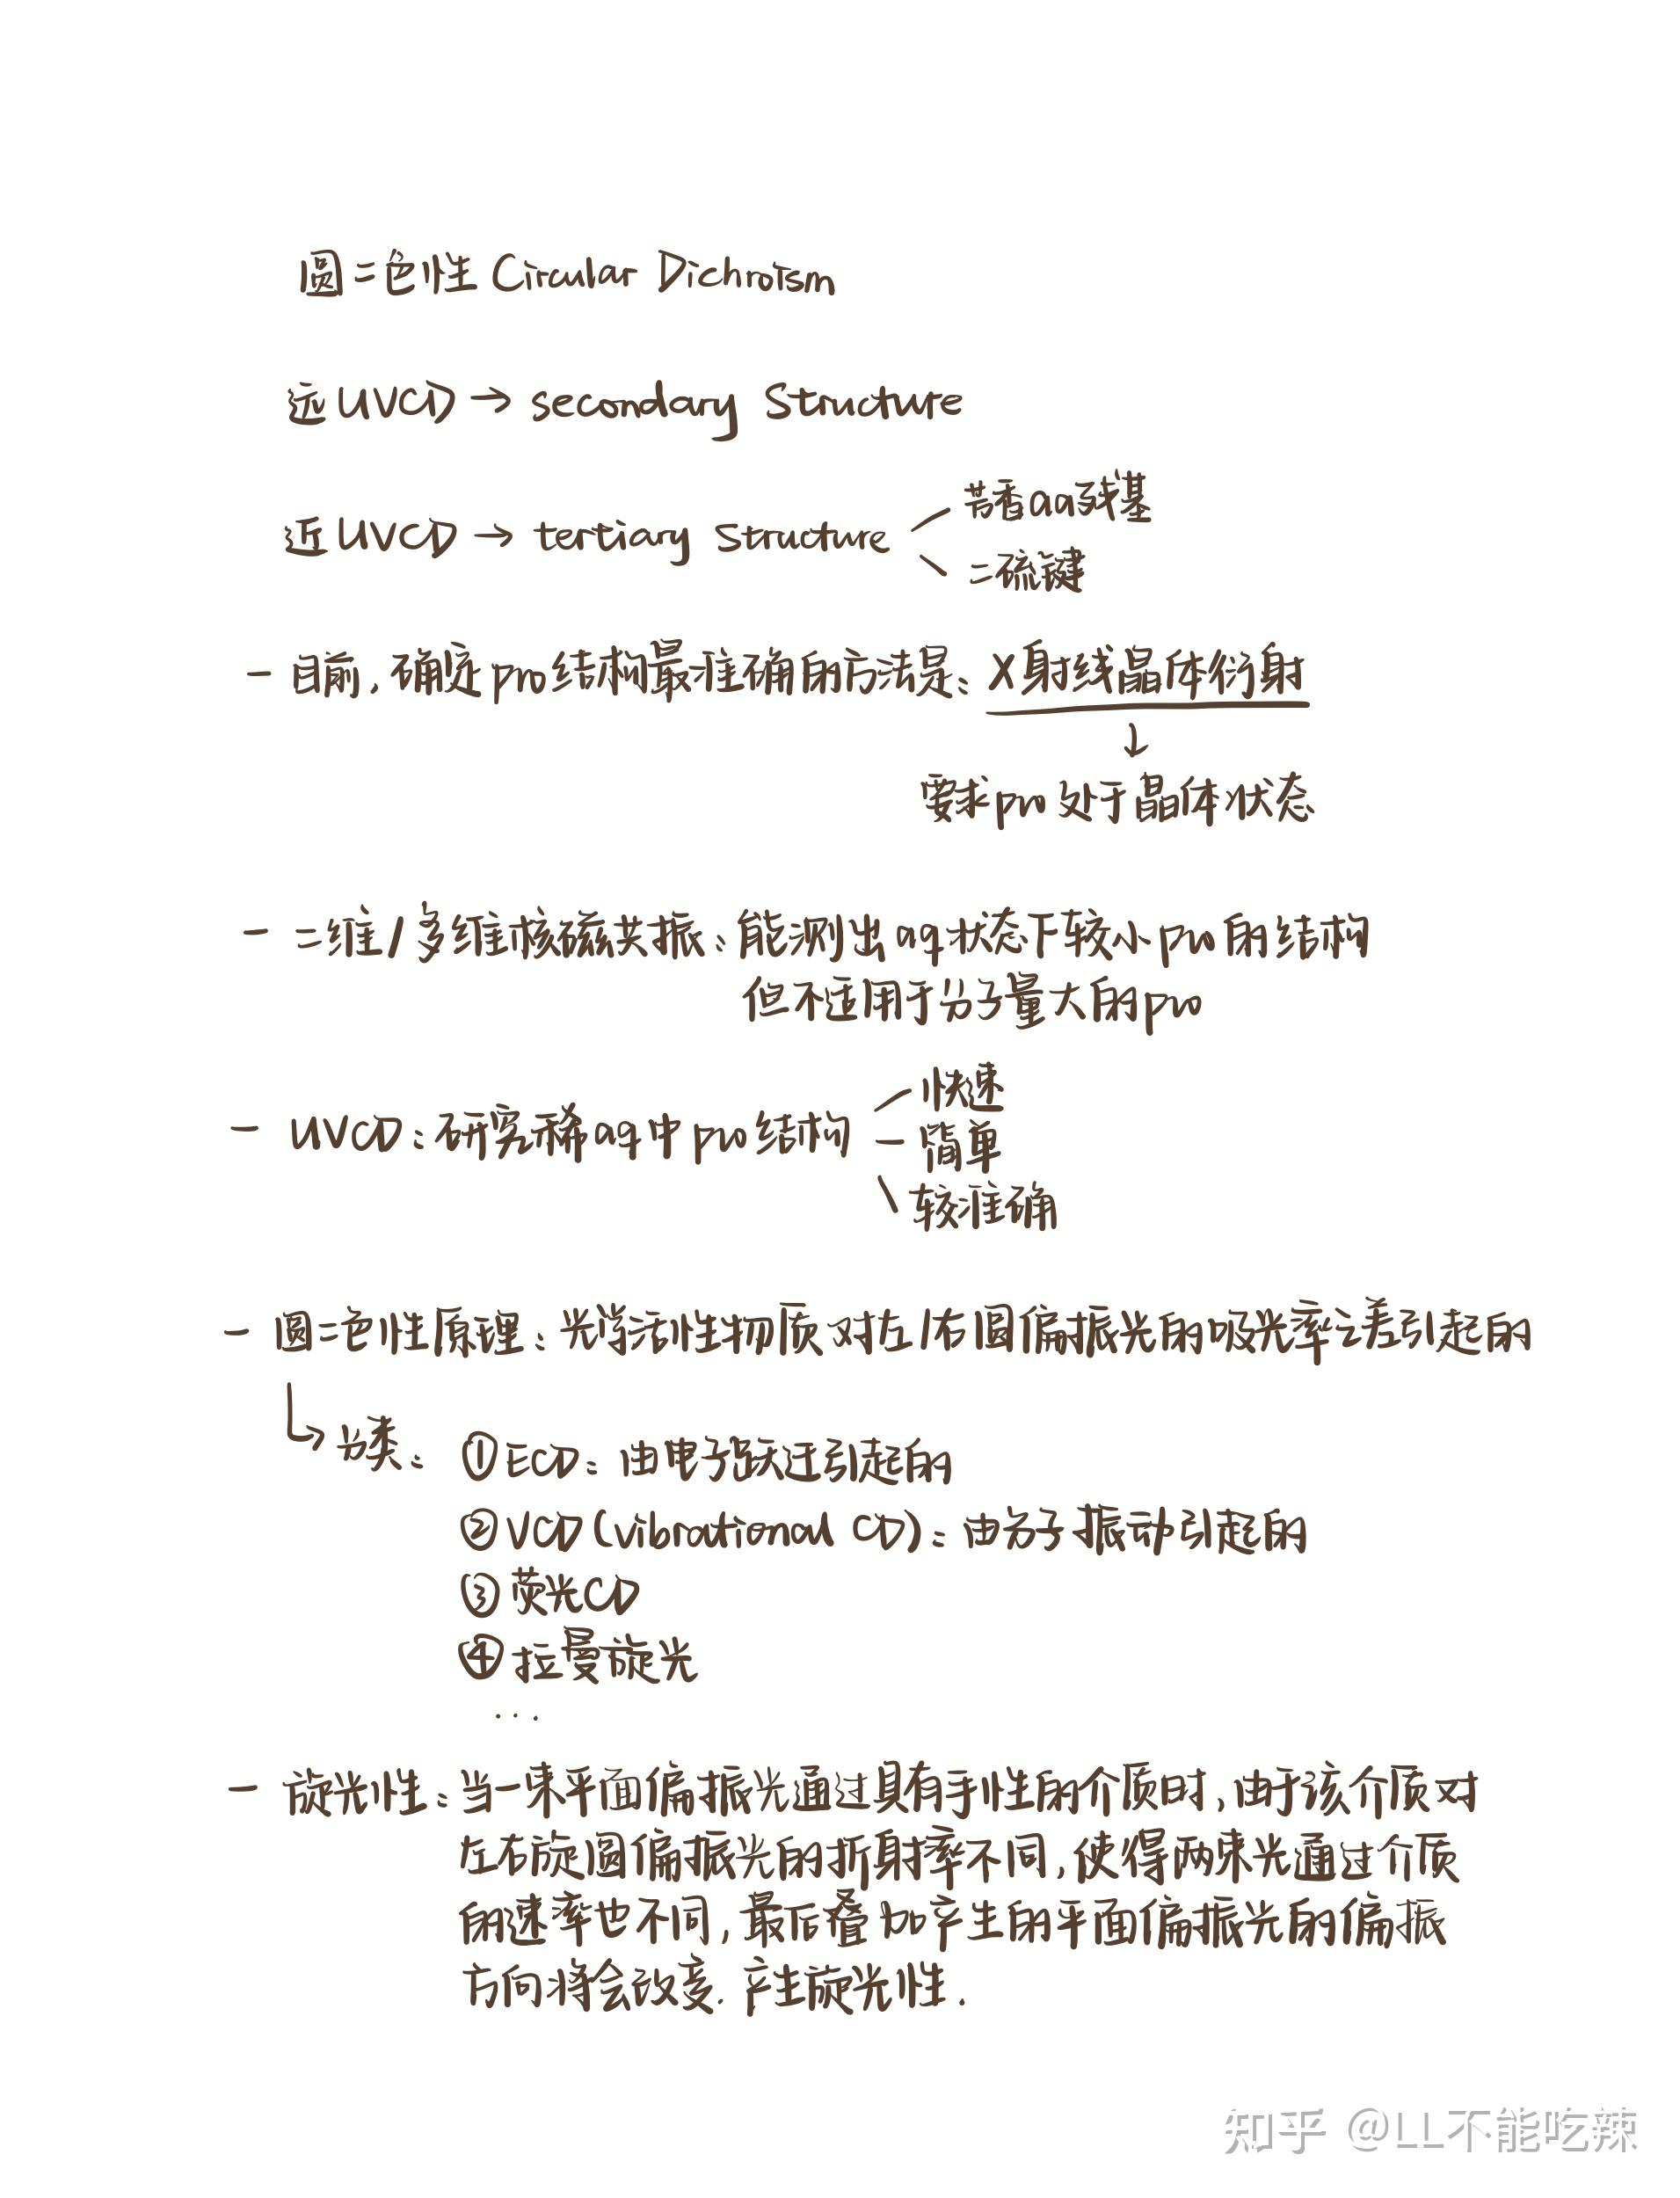 圆二色性 Circular Dichroism
远UVCD → secondary Structure
近UVCD → tertiary Structure
芳香aa残基
二硫键
- 目前, 确定pro结构最准确的方法是: X射线晶体衍射
↓
要求pro处于晶体状态
- 二维/多维核磁共振: 能测出aq状态下较小pro的结构
但不适用于分子量大的pro
- UVCD: 研究稀aq中pro结构
快速
简单
较准确
- 圆二色性原理: 光学活性物质对左/右圆偏振光的吸光率之差引起的
↳ 分类: ① ECD: 由电子跃迁引起的
② VCD (vibrational CD): 由分子振动引起的
③ 荧光CD
④ 拉曼旋光
...
- 旋光性: 当一束平面偏振光通过具有手性的介质时, 由于该介质对
左右旋圆偏振光的折射率不同, 使得两束光通过介质
的速率也不同, 最后叠加产生的平面偏振光的偏振
方向将会改变. 产生旋光性.
知乎 @LL不能吃辣